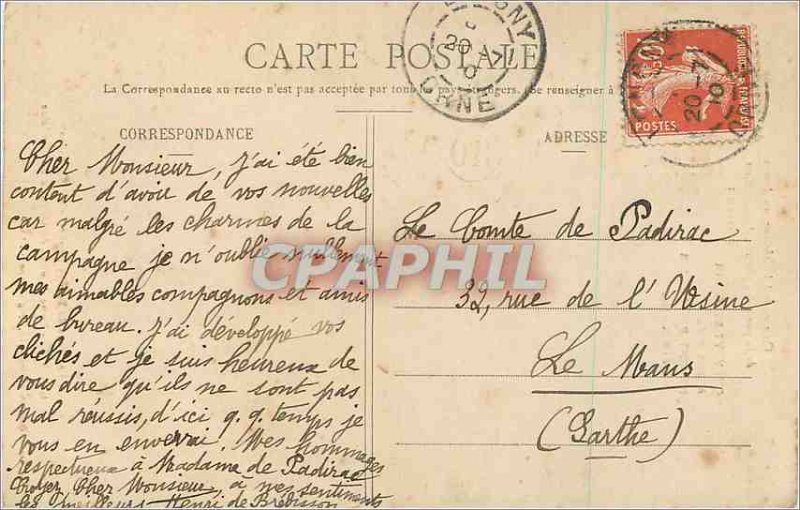 CARTE POSTALE
La Correspondance au recto n'est pas acceptée par tous les pays étrangers. (Se renseigner à
CORRESPONDANCE
Cher Monsieur, j'ai été bien
content d'avoir de vos nouvelles
car malgré les charmes de la
campagne je n'oublie nullement
mes aimables compagnons et amis
de bureau. J'ai développé vos
clichés et je suis heureux de
vous dire qu'ils ne sont pas
mal réussis, d'ici q.q. temps je
vous en enverrai. Mes hommages
respectueux à Madame de Padirac
Croyez Cher Monsieur, à mes sentiments
les meilleurs Henri de Brébisson
ADRESSE
Le Comte de Padirac
32, rue de l'Usine
Le Mans
(Sarthe)
ORNE
20
POSTES
20-7
10
CPAPHIL